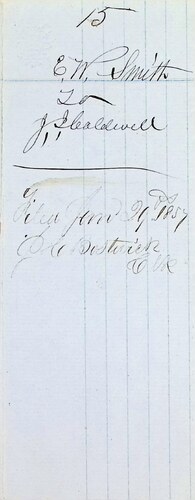 15
E. W. Smith
To
J. J. Caldwell
Filed June 29th 1857
Clk